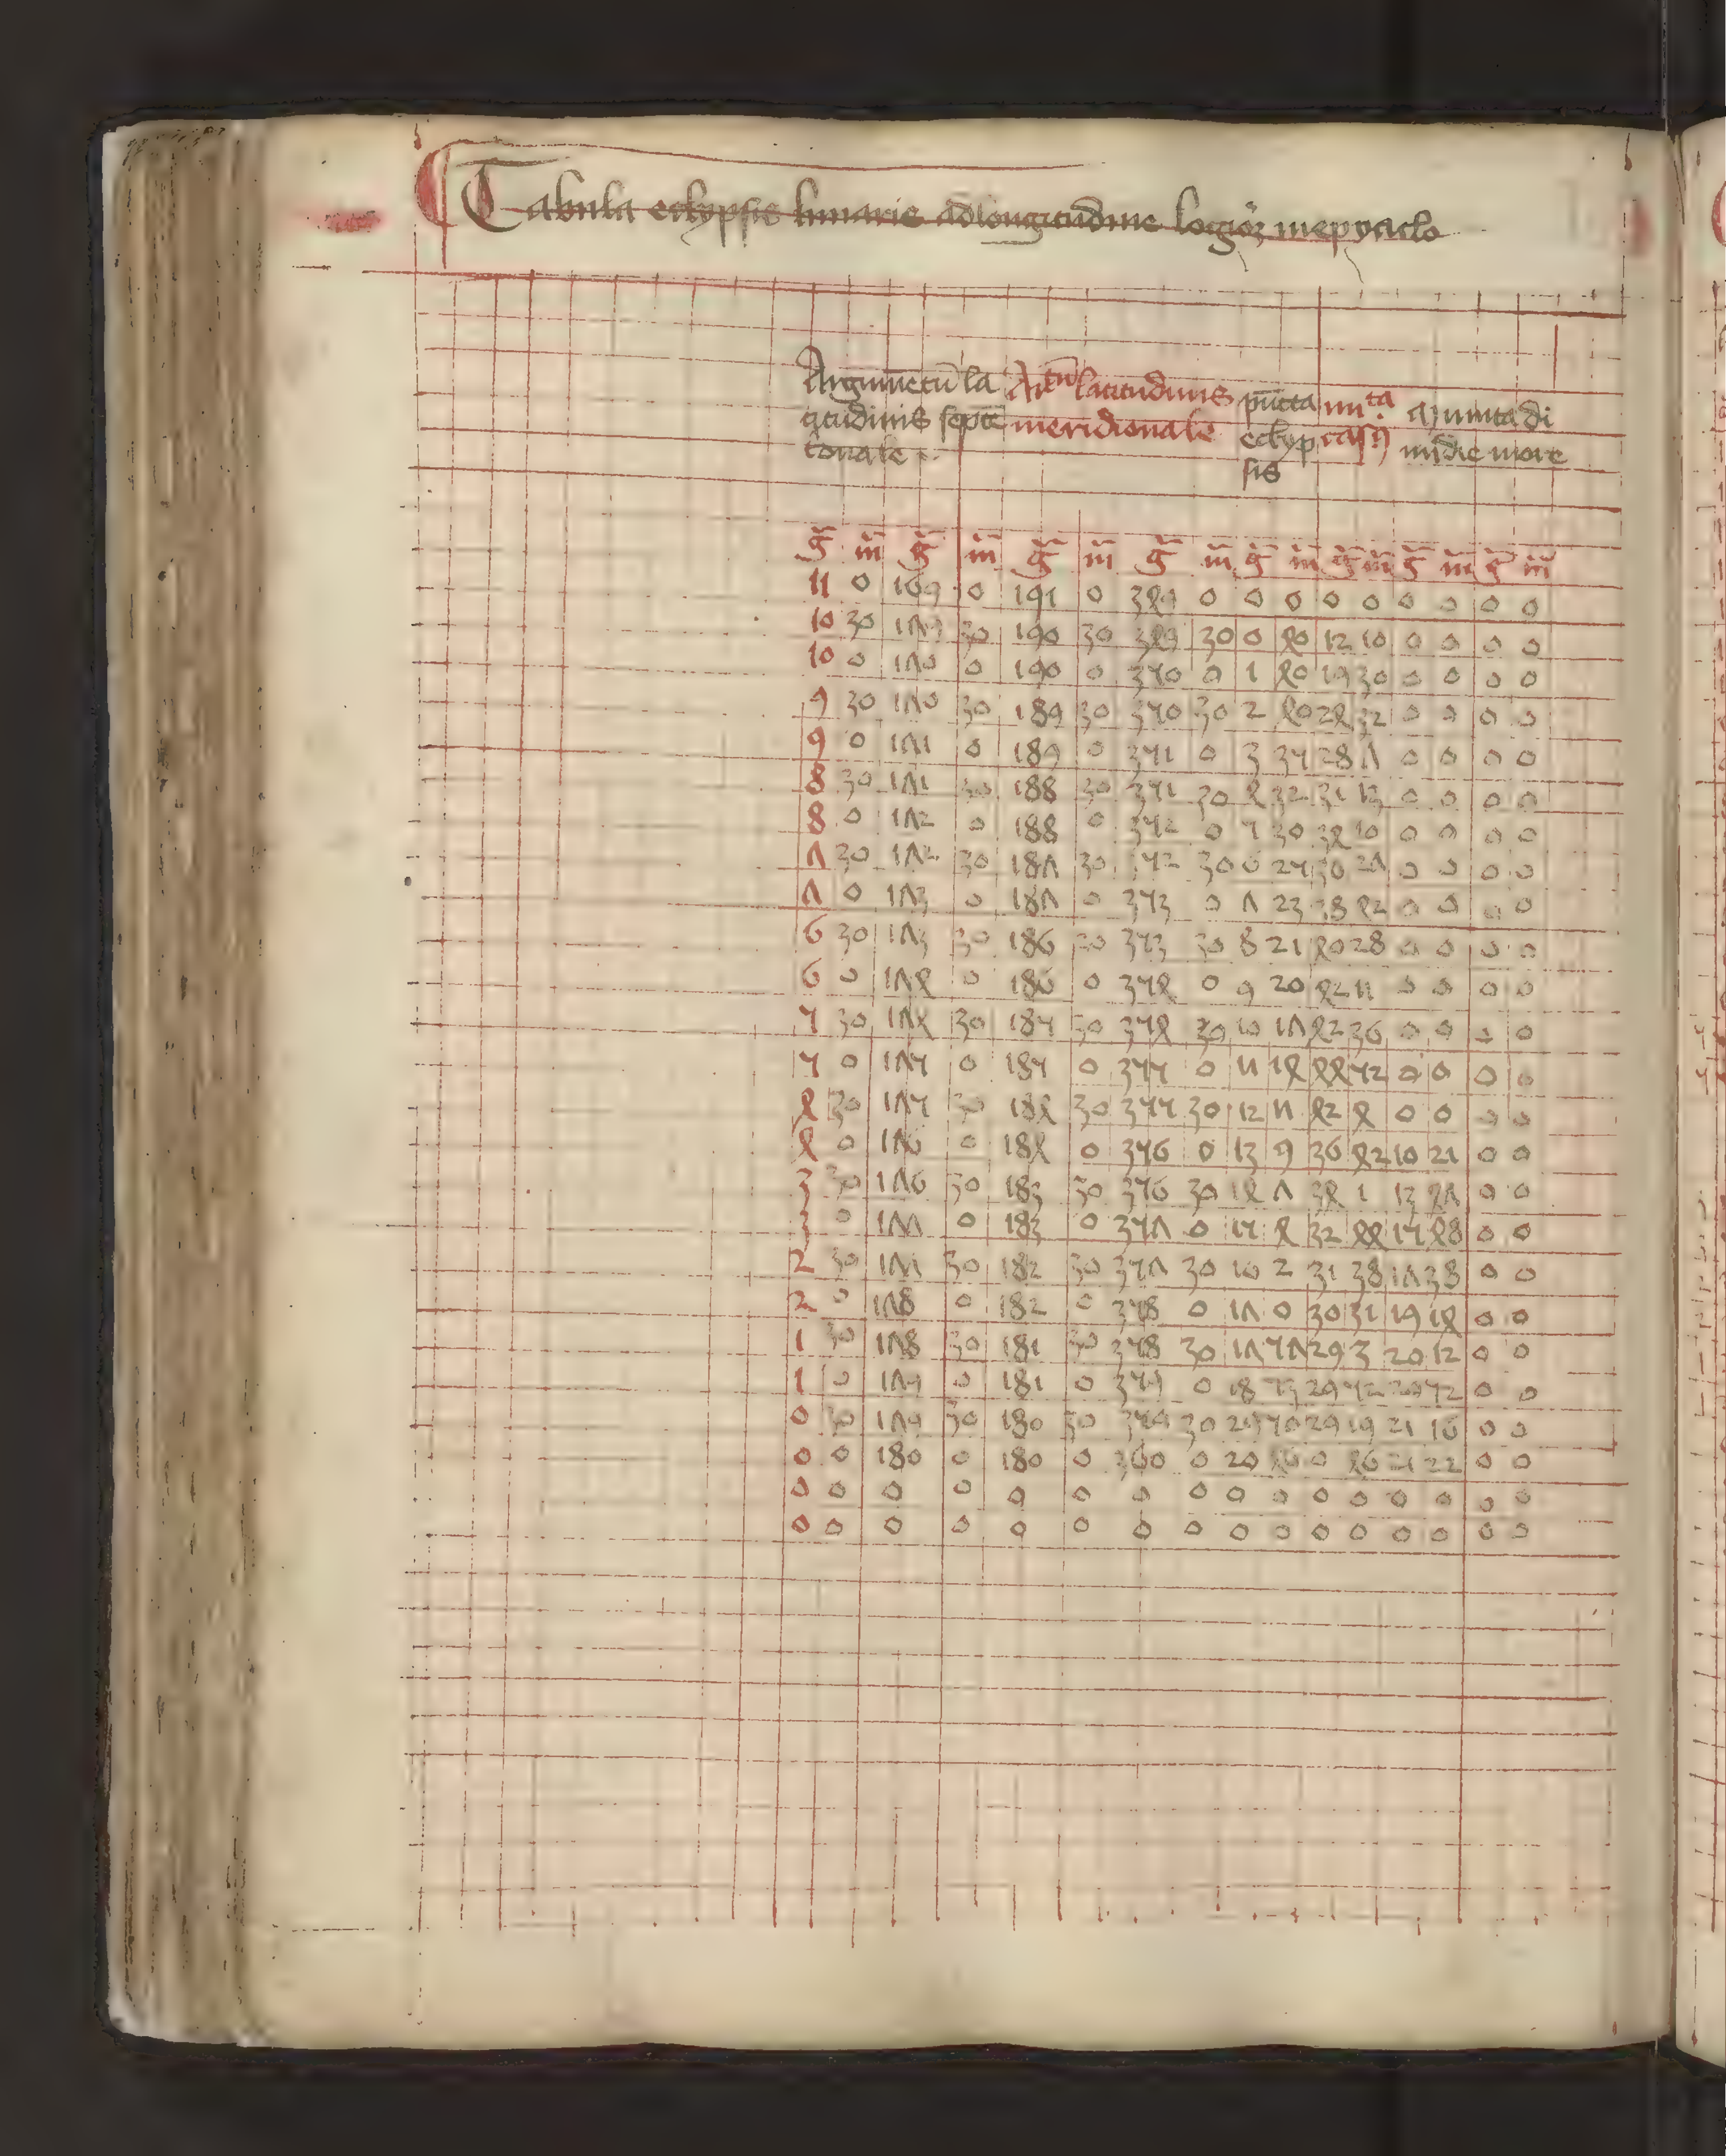 Tabula eclypsis lunarie ad longitudinē logiorꝫ in epyciclo
Argumētū la Artū latitudinis pūcta minta minuta di
titudinis septē meridionale eclyp casꝯ midie more
tonale sis
g̃ m̃ g̃ m̃ g̃ m̃ g̃ m̃ g̃ m̃ g̃ m̃ g̃ m̃ g̃ m̃
11 0 169 0 191 0 349 0 0 0 0 0 0 0 0 0
10 30 169 30 190 30 349 30 0 40 12 10 0 0 0 0
10 0 170 0 190 0 350 0 1 40 19 30 0 0 0 0
9 30 170 30 189 30 350 30 2 40 24 32 0 0 0 0
9 0 171 0 189 0 351 0 3 35 28 7 0 0 0 0
8 30 171 30 188 30 351 30 4 32 31 13 0 0 0 0
8 0 172 0 188 0 352 0 5 30 34 10 0 0 0 0
7 30 172 30 187 30 352 30 6 25 36 27 0 0 0 0
7 0 173 0 187 0 353 0 7 23 38 42 0 0 0 0
6 30 173 30 186 30 353 30 8 21 40 28 0 0 0 0
6 0 174 0 186 0 354 0 9 20 42 11 0 0 0 0
5 30 174 30 185 30 354 30 10 17 42 36 0 0 0 0
5 0 175 0 185 0 355 0 11 14 44 52 0 0 0 0
4 30 175 30 184 30 355 30 12 11 42 4 0 0 0 0
4 0 176 0 184 0 356 0 13 9 36 42 10 21 0 0
3 30 176 30 183 30 356 30 14 7 34 1 13 47 0 0
3 0 177 0 183 0 357 0 15 4 32 44 15 48 0 0
2 30 177 30 182 30 357 30 16 2 31 38 17 38 0 0
2 0 178 0 182 0 358 0 17 0 30 31 19 14 0 0
1 30 178 30 181 30 358 30 17 57 29 3 20 12 0 0
1 0 179 0 181 0 359 0 18 53 29 52 20 52 0 0
0 30 179 30 180 30 359 30 29 50 29 19 21 16 0 0
0 0 180 0 180 0 360 0 20 46 0 46 21 22 0 0
0 0 0 0 0 0 0 0 0 0 0 0 0 0 0 0
0 0 0 0 0 0 0 0 0 0 0 0 0 0 0 0